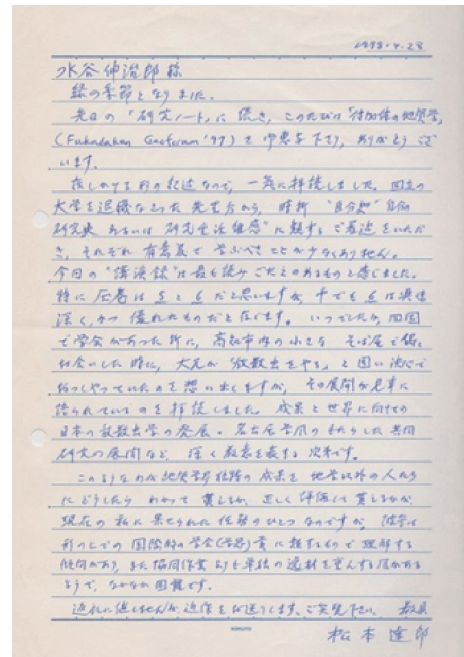 1998.4.28
水谷伸治郎様
緑の季節となりました。
先日の「研究ノート」に続き、このたびは「付加体の地質学」
(Fukadaken Geoforum '97)を御恵与下さり、ありがとうござ
います。
話しかける形の叙述なので、一気に拝読しました。国立の
大学を退職なさった先生方から、時折 "自分史" 自伝
研究史 あるいは 研究生活雑感" に類する ご著述をいただ
き、それぞれ 有意義で 学ぶべきことが少なくありません。
今回の "講演録" は最も読みごたえのあるものと感じました。
特に 圧巻は 5 と 6 だと思いますが、中でも 6 は興味
深く、かつ 優れたものだと存じます。いつでしたか 四国
で学会があった折に、高知市内の小さな そば屋で偶々
出会いした時に、大兄が「放散虫をやる」と固い決心で
おっしゃっていたのを 想い出しますが、その展開が見事に
語られているのを 拝読しました。成果と世界に向けての
日本の放散虫学の発展、名古屋学派のもたらした 共同
研究の展開など、深く敬意を表する 次第です。
このような わが地質学界 の成果を 地学以外の人たち
に どうしたら わかって 貰えるか、正しく評価して 貰えるかが、
現在の 私に 果せられた 任務のひとつなのですが、
形の上での 国際的の学会(学界)賞に類するもので 理解する
傾向があり、また協同作業よりも単独の 業績を重んずる風がある
ようで、なかなか困難です。
遅れに 近信をお送りします。ご笑覧下さい。 敬具
松本達郎